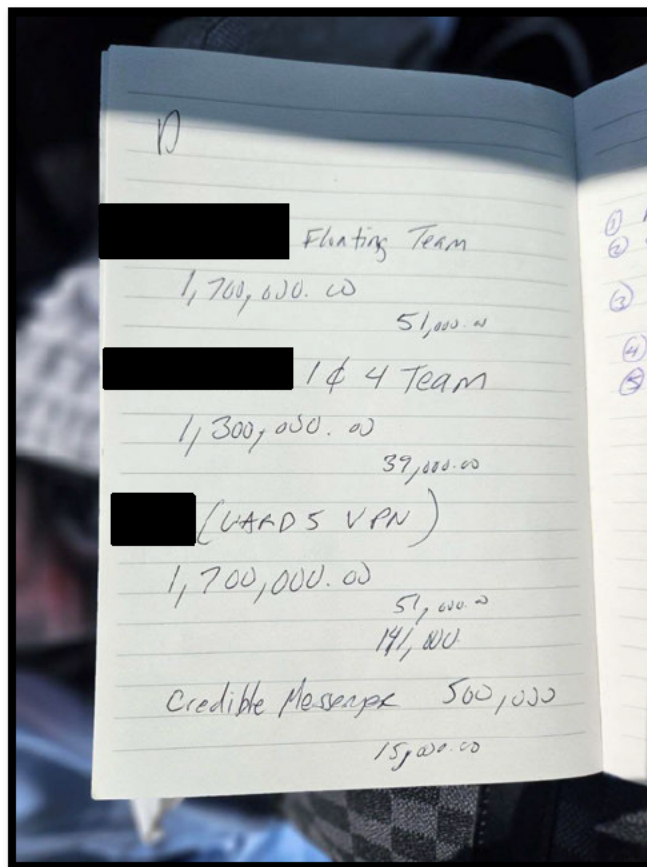 Floating Team
1,700,000.00
51,000.00
1 & 4 Team
1,300,000.00
39,000.00
(WARD 5 VPN)
1,700,000.00
51,000.00
141,000.
Credible Messenger 500,000
15,000.00
①
②
③
④
⑤